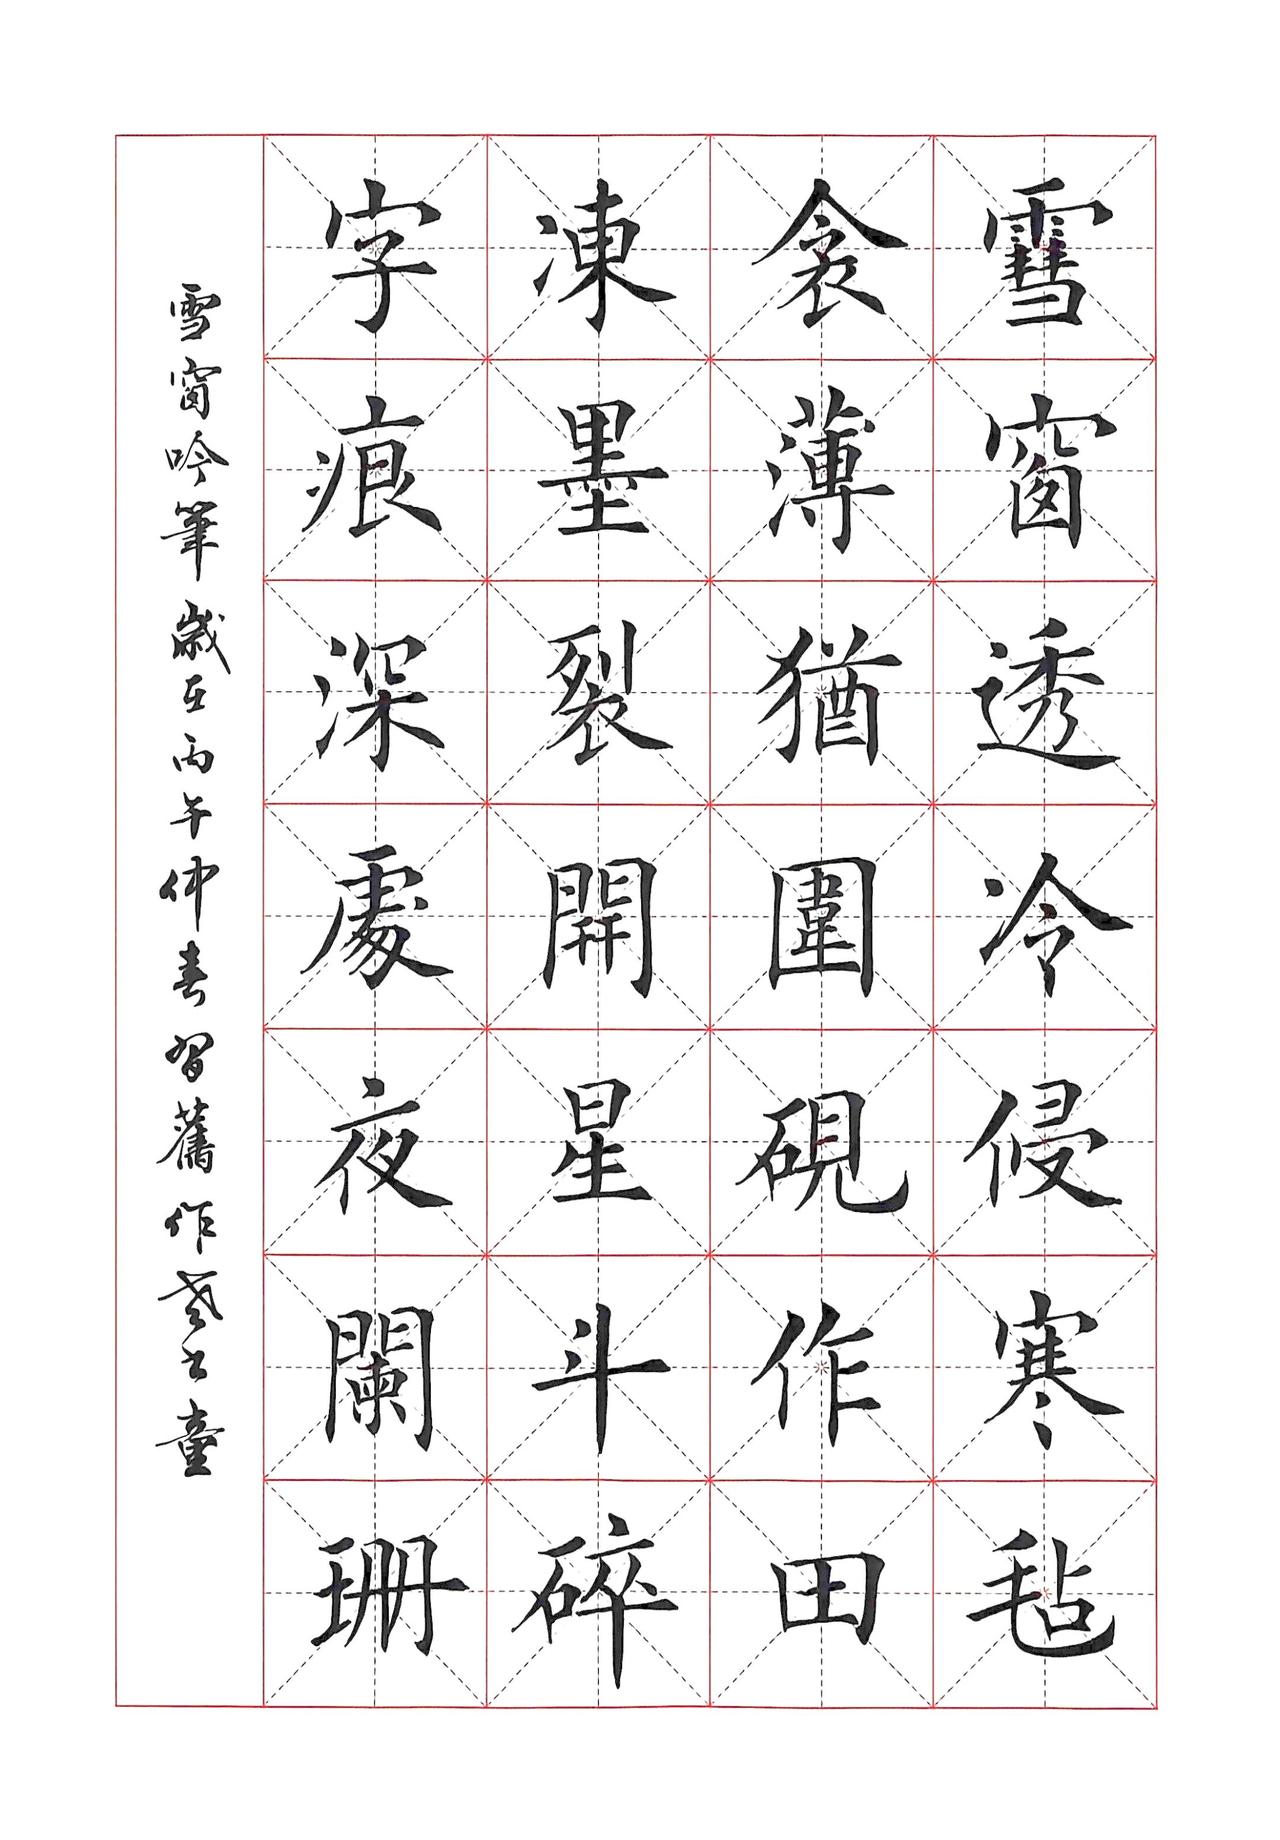 雪窗透冷侵寒毡
衾薄猶圍硯作田
凍墨裂開星斗碎
字痕深處夜闌珊
雪窗吟筆 歲在丙午仲春習舊作 老書童